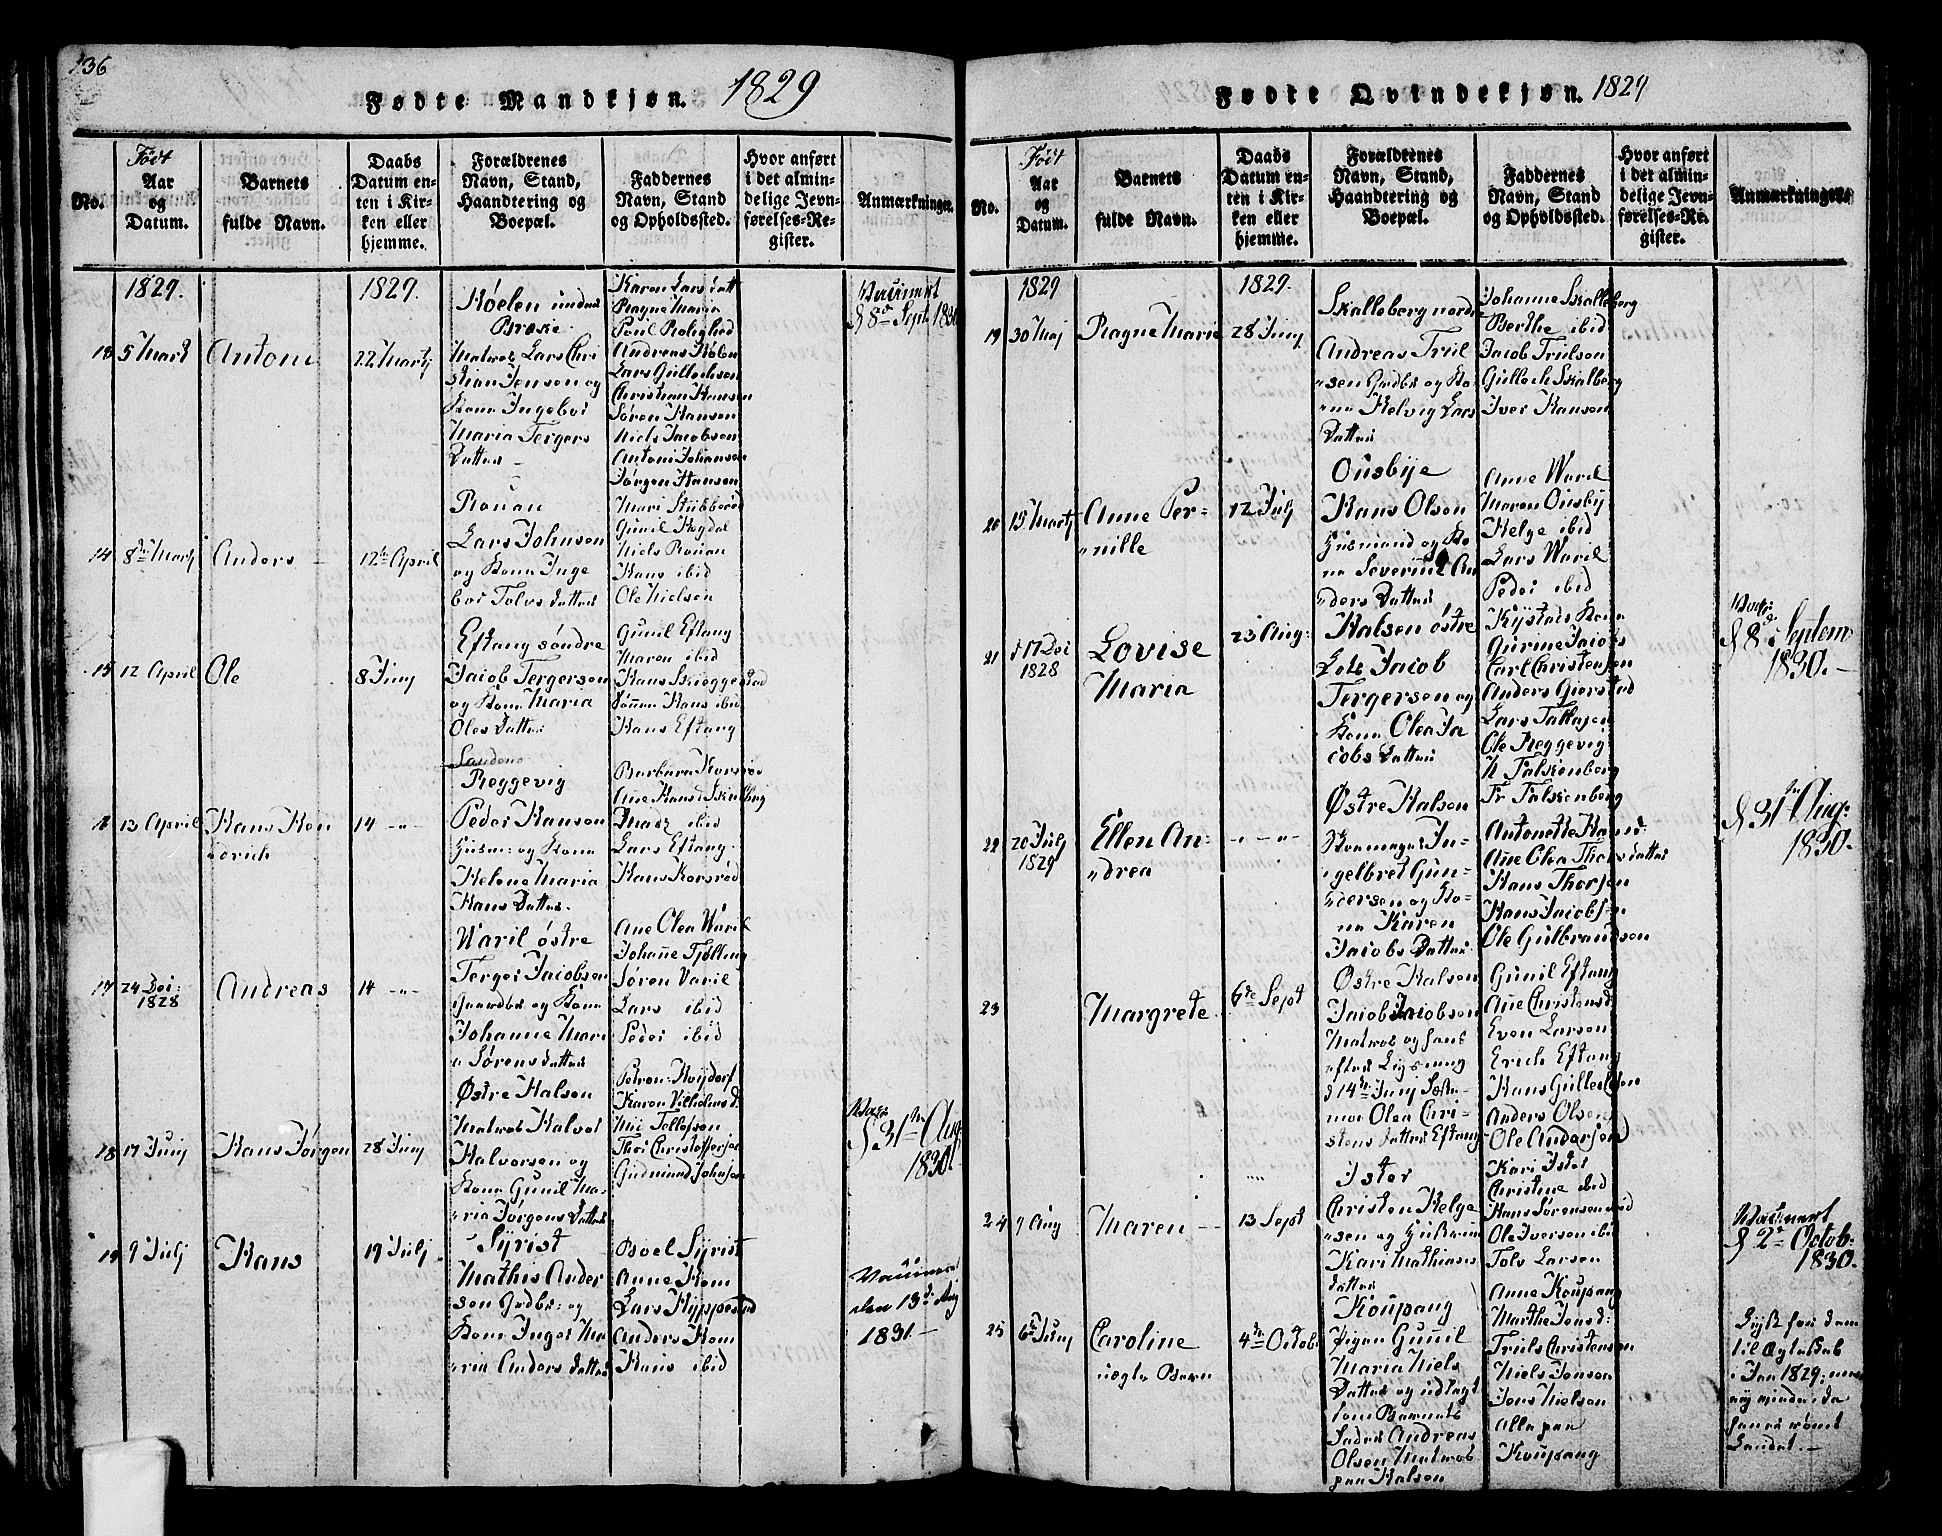 136
Fødte Mandkjøn. 1829
No.
Født
Aar
og
Datum.
Barnets
fulde Navn.
Daabs
Datum en-
ten i Kir-
ken eller
hjemme.
Forældrenes
Navn, Stand,
Haandtering og
Boepæl.
Faddernes
Navn, Stand
og Opholdssted.
Hvor anført
i det almin-
delige Jevn-
førelses-Re-
gister.
Anmærkninger.
1829.
1829.
13
5 Mart
Antoni
22 Martj
Køelen under
Brøke.
Matros Lars Chri
stian Jensen og
Kone Ingebor
Maria Tergers
Datter
Karen Lars Datt
Ragne Maria
Poul Rolighed
Andreas Kølen
Lars Gullichsen
Christian Hansen
Søren Hansen
Niels Jacobsen
Antoni Johansen
Jørgen Hansen
Vaccinert
d 8de Sept. 1830
14
8de Martj
Anders
12te April
Rouan
Lars Johnsen
og Kone Inge
bor Tolvs Datter
Mari Stubberød
Gunil Hogdal
Niels Rouan
Hans ibid
Ole Nielsen
15
12 April
Ole
8 Junj
Eftang søndre
Jacob Tergersen
og Kone Maria
Oles Datter
Gunil Eftang
Maren ibid
Hans Skieggestad
Hans ibid
Hans Eftang
16
13 April
Hans Hen
derich
14 -"-
Sandene
Reggevig
Peder Hansen
Huusm: og Kone
Helene Maria
Hans Datter.
Barbara Korsrød
Ane Hansd Skalberg
Marz ibid
Lars Eftang
Hans Korsrød
17
24 Dec:
1828
Andreas
14 -"-
Waril østre
Terger Jacobsen
Gaardbr og Kone
Johanne Mari
a Sørens Datter
Ane Olea Waril
Johanne Tjølling
Søren Varil
Lars ibid
Peder ibid
18
17 Junj
Hans Jørgen
28 Junj
Østre Halsen
Matros Halvor
Halvorsen og
Kone Gunil Ma-
ria Jørgens Datter
Petron: Høydorf
Karen Vilhelms d:
Nic Tollefsen
Thor Christoffersen
Gudmund Johnsen
Vacc.
d 31te Aug:
1830
19
9 Julj
Hans
19 Julj
Syrist
Mathis Ander
sen Grdbr: og
Kone Inger Ma
ria Anders Datter
Boel Syrist
Anne Hem
Lars Kyppestad
Anders Hem
Hans ibid
Vaccineret
den 13de Aug
1831
Fødte Qvindekjøn. 1829
No.
Født
Aar
og
Datum.
Barnets
fulde Navn.
Daabs
Datum en-
ten i Kir-
ken eller
hjemme.
Forældrenes
Navn, Stand,
Haandtering og
Boepæl.
Faddernes
Navn, Stand
og Opholdssted.
Hvor anført
i det almin-
delige Jevn-
førelses-Re-
gister.
Anmærkninger.
1829
1829.
19
30 Maj
Ragne Marie
28 Junj
Skalleberg nordre
Andreas Truul
sen Grdbr og Ko
ne Helvig Lars
Datter
Johanne Skalleberg
Berthe ibid
Jacob Trulsen
Gulloch Skalberg
Iver Hansen
20
15 Martj
Anne Per-
nille
12 Julj
Ousbye
Hans Olsen
Huusmand og Ko
ne Severine An
ders Datter
Anne Waril
Maren Ousby
Helge ibid
Lars Waril
Peder ibid
21
17 Dec
1828
Lovise
Maria
23 Aug:
Halsen østre
Lods Jacob
Tergersen og
Kone Olea Ja
cobs Datter
Gurine Jacobs
Carl Christensen
Anders Gierstad
Lars Tallagsen
Ole Reggevig
N Falkenberg
Fr Falkenberg
Vacc:
d 8de Septem
1830.
22
20 Julj
1829
Ellen An-
drea
-"-"-
Østre Halsen
In-
gelbret Gun-
dersen og Ko-
ne Karen
Jacobs Datter
Antonette Hansd:
Ane Olea Thors Datter
Hans Thorsen
Hans Jacobsen
Ole Gulbrandsen
d 31te Aug:
1830.
23
Margrete
6te Sept
Østre Halsen
Jacob Jacobsen
Matros og hans
efter Ligsang
d 14de Junj
moe Olea Chri-
stens Datter Eftang
Gunil Eftang
Ane Christensd
Even Larsen
Erich Eftang
Hans Gullechsen
Anders Olsen
Ole Andersen
24
9 Aug
Maren
13 Sept
Ister
Christen Helge
sen og Hustrue
Kari Mathises
Datter
Kari Ister
Christine ibid
Hans Sørensen ibid
Ole Iversen ibid
Tolv Larsen
Vaccinert
d 2den Octob:
1830.
25
6te Junj
Caroline
uægte Barn
4de Octob
Koupang
Pigen Gunil
Maria Niels
Datter og udlagt
som Barnets
Fader Andreas
Olsen Matros
paa Halsen
Anne Koupang
Marthe Jensd:
Truls Christensen
Niels Jensen
Jens Nielsen
Alle paa
Koupang
Lyst for dem
til Ægteskab
i Jan 1829;
han rømt
Landet.